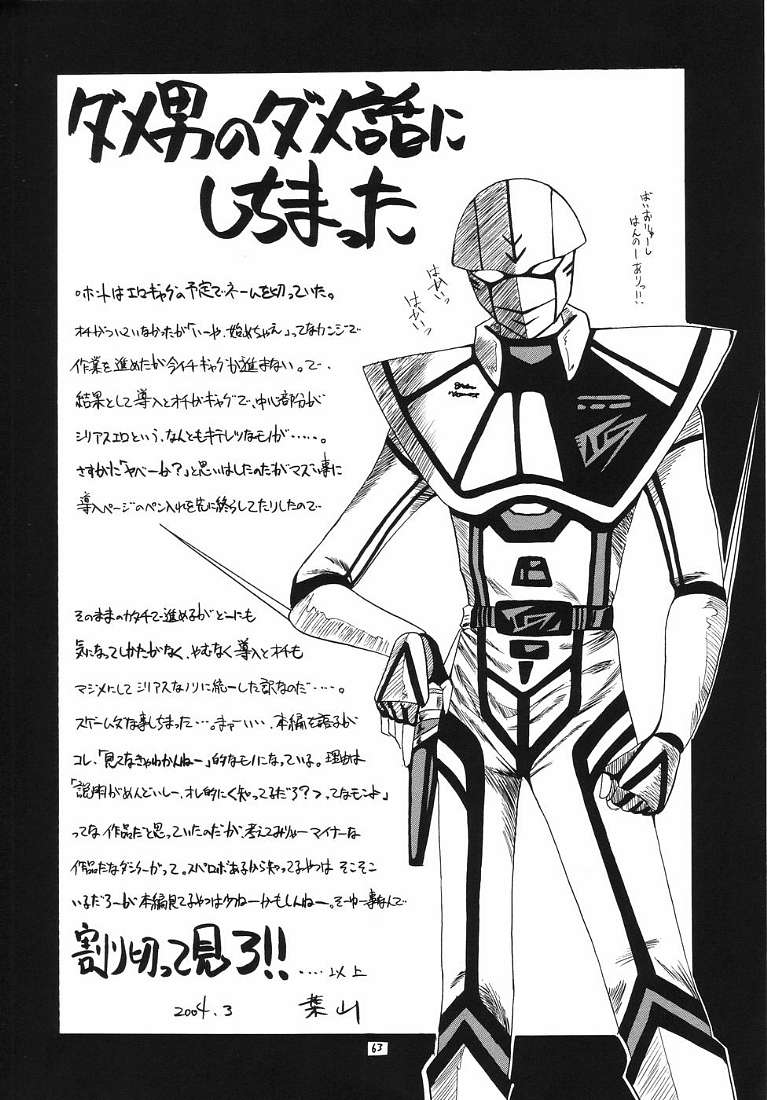 ダメ男のダメ話に
しちまった
ばいおりれーし
はんのーありっ!!
はぁいっ
はぁいっ
ホントはエロギャグの予定でネームを切っていた。
オチがついていなかったが「いーや、始めちゃえ」ってなカンジで
作業を進めたが今イチギャグが進まない。で、
結果として導入とオチがギャグで、中心部分が
シリアスエロという、なんともキテレツなモノが・・・・・。
さすがに「ヤベーか?」と思いはしたのだがマズい事に
導入ページのペン入れを先に終らしてたりしたので
そのままのカタチで進めるがどーにも
気になってしかたがなく、やむなく導入とオチも
マジメにしてシリアスなノリに統一した訳なのだ・・・・。
スゲームダな事しちまった・・・。まぁーいい、本編を語るが
コレ、「見てなきゃわかんねー」的なモノになっている。理由は
「説明がめんどいしー、オレ的にく知ってるだろ?>てなモンよ」
ってな作品だと思っていたのだが、考えてみりゃーマイナーな
作品だなダンクーガって。スパロボあるから知ってるやつはそこそこ
いるだろーが本編見てるやつは少ねーかもしんねー。そーゆー事なんで
割り切って見ろ!!
・・・・以上
2004.3 葉山
63